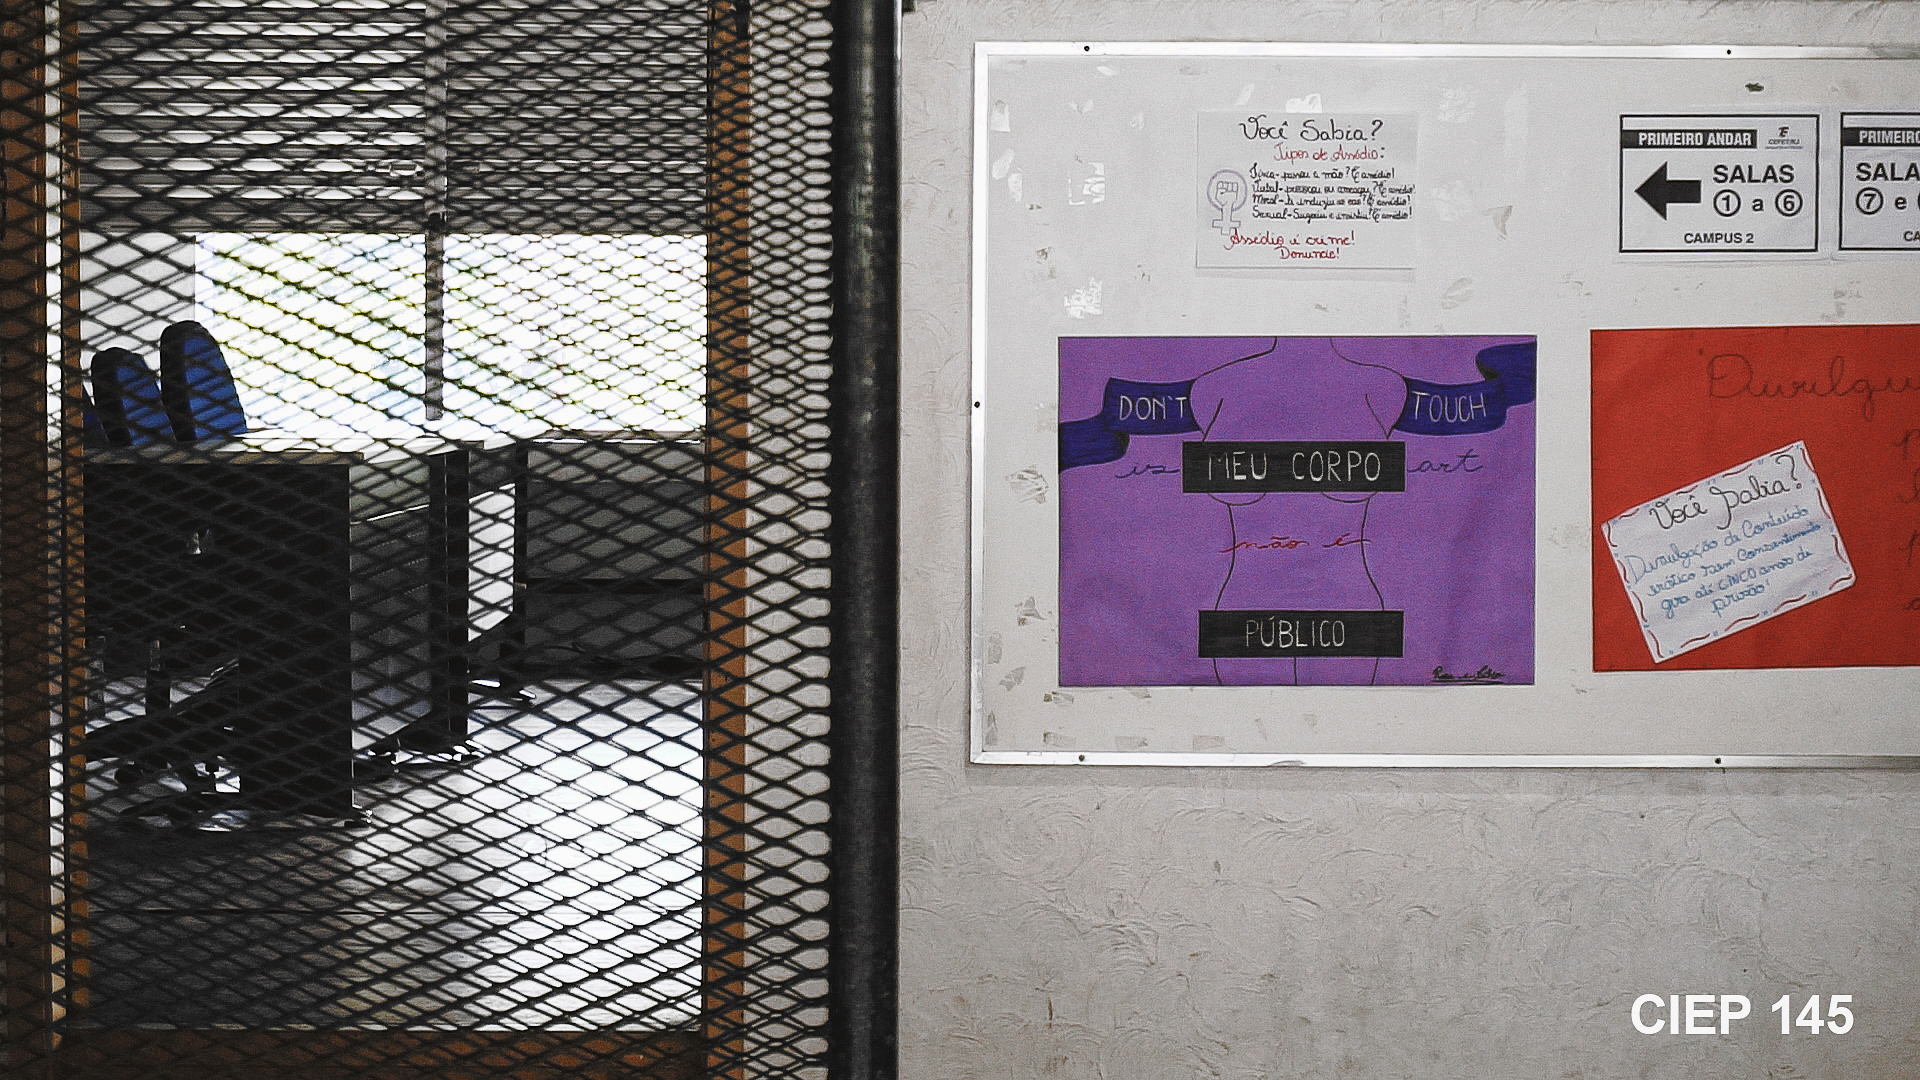 Você Sabia?
Tipos de Assédio:
Física - passou a mão? É assédio!
Verbal - pressiou ou ameaçou? É assédio!
Moral - Te induziu ao erro? É assédio!
Sexual - Sugeriu e insistiu? É assédio!
Assédio é crime!
Denuncie!
PRIMEIRO ANDAR
CEFET/RJ
SALAS
1 a 6
CAMPUS 2
PRIMEIRO
SALA
7 e
CA
DON'T TOUCH
is MEU CORPO art
não é
PÚBLICO
Divulgu
Você Sabia?
Divulgação de Conteúdo
erótico sem Consentimento
gera até CINCO anos de
prisão!
CIEP 145